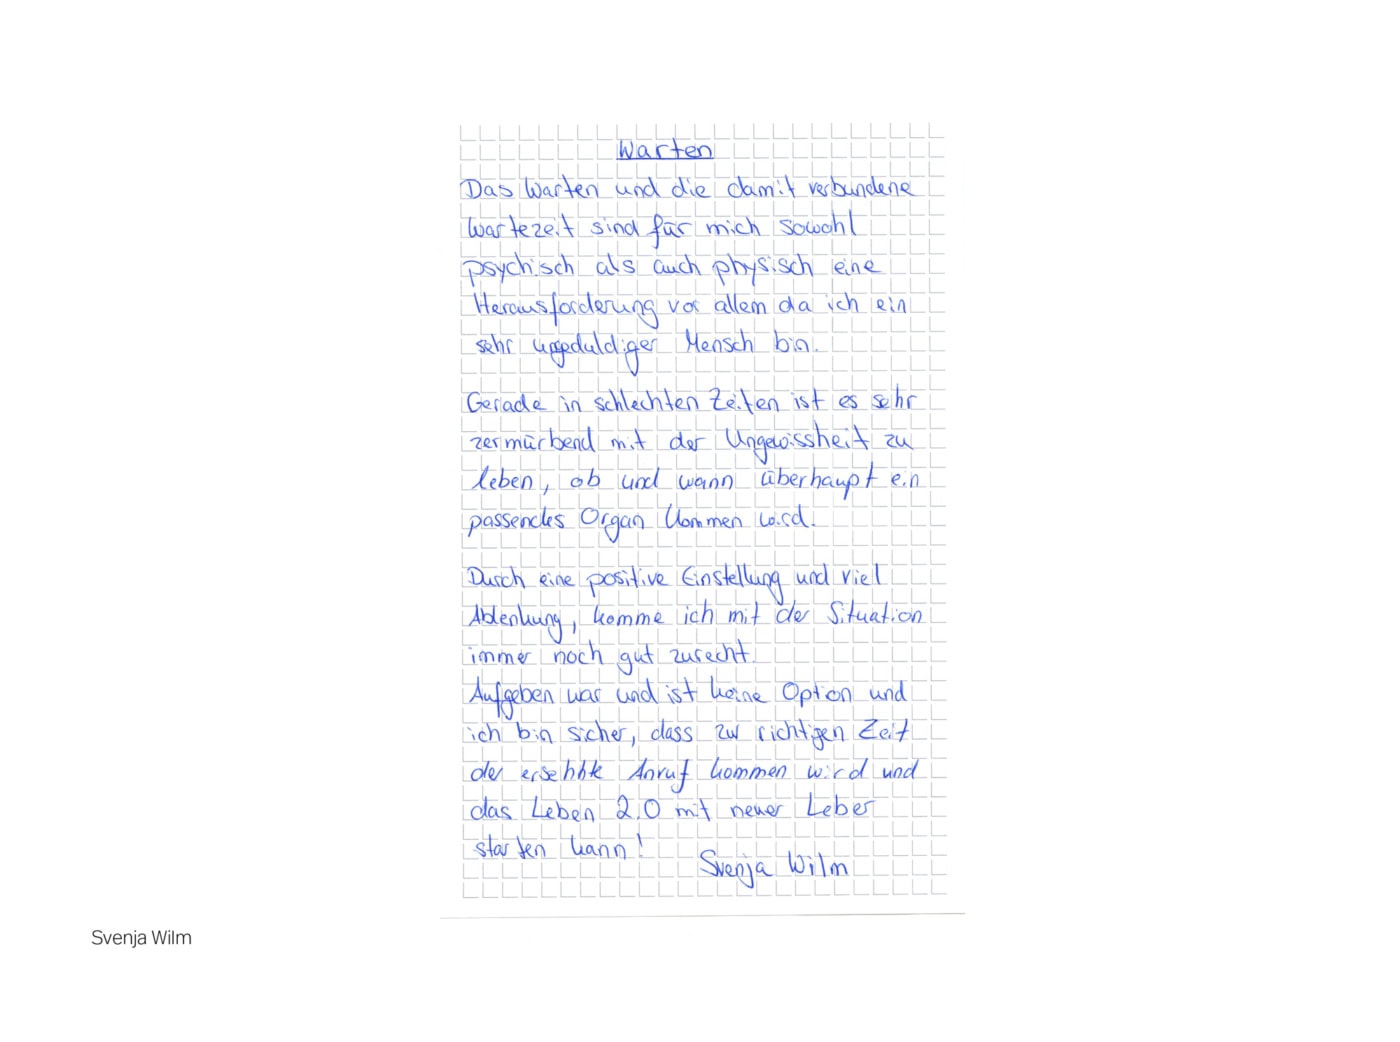 Warten
Das Warten und die damit verbundene
Wartezeit sind für mich sowohl
psychisch als auch physisch eine
Herausforderung vor allem da ich ein
sehr ungeduldiger Mensch bin.
Gerade in schlechten Zeiten ist es sehr
zermürbend mit der Ungewissheit zu
leben, ob und wann überhaupt ein
passendes Organ kommen wird.
Durch eine positive Einstellung und viel
Ablenkung, komme ich mit der Situation
immer noch gut zurecht.
Aufgeben war und ist keine Option und
ich bin sicher, dass zur richtigen Zeit
der ersehnte Anruf kommen wird und
das Leben 2.0 mit neuer Leber
starten kann!
Svenja Wilm
Svenja Wilm